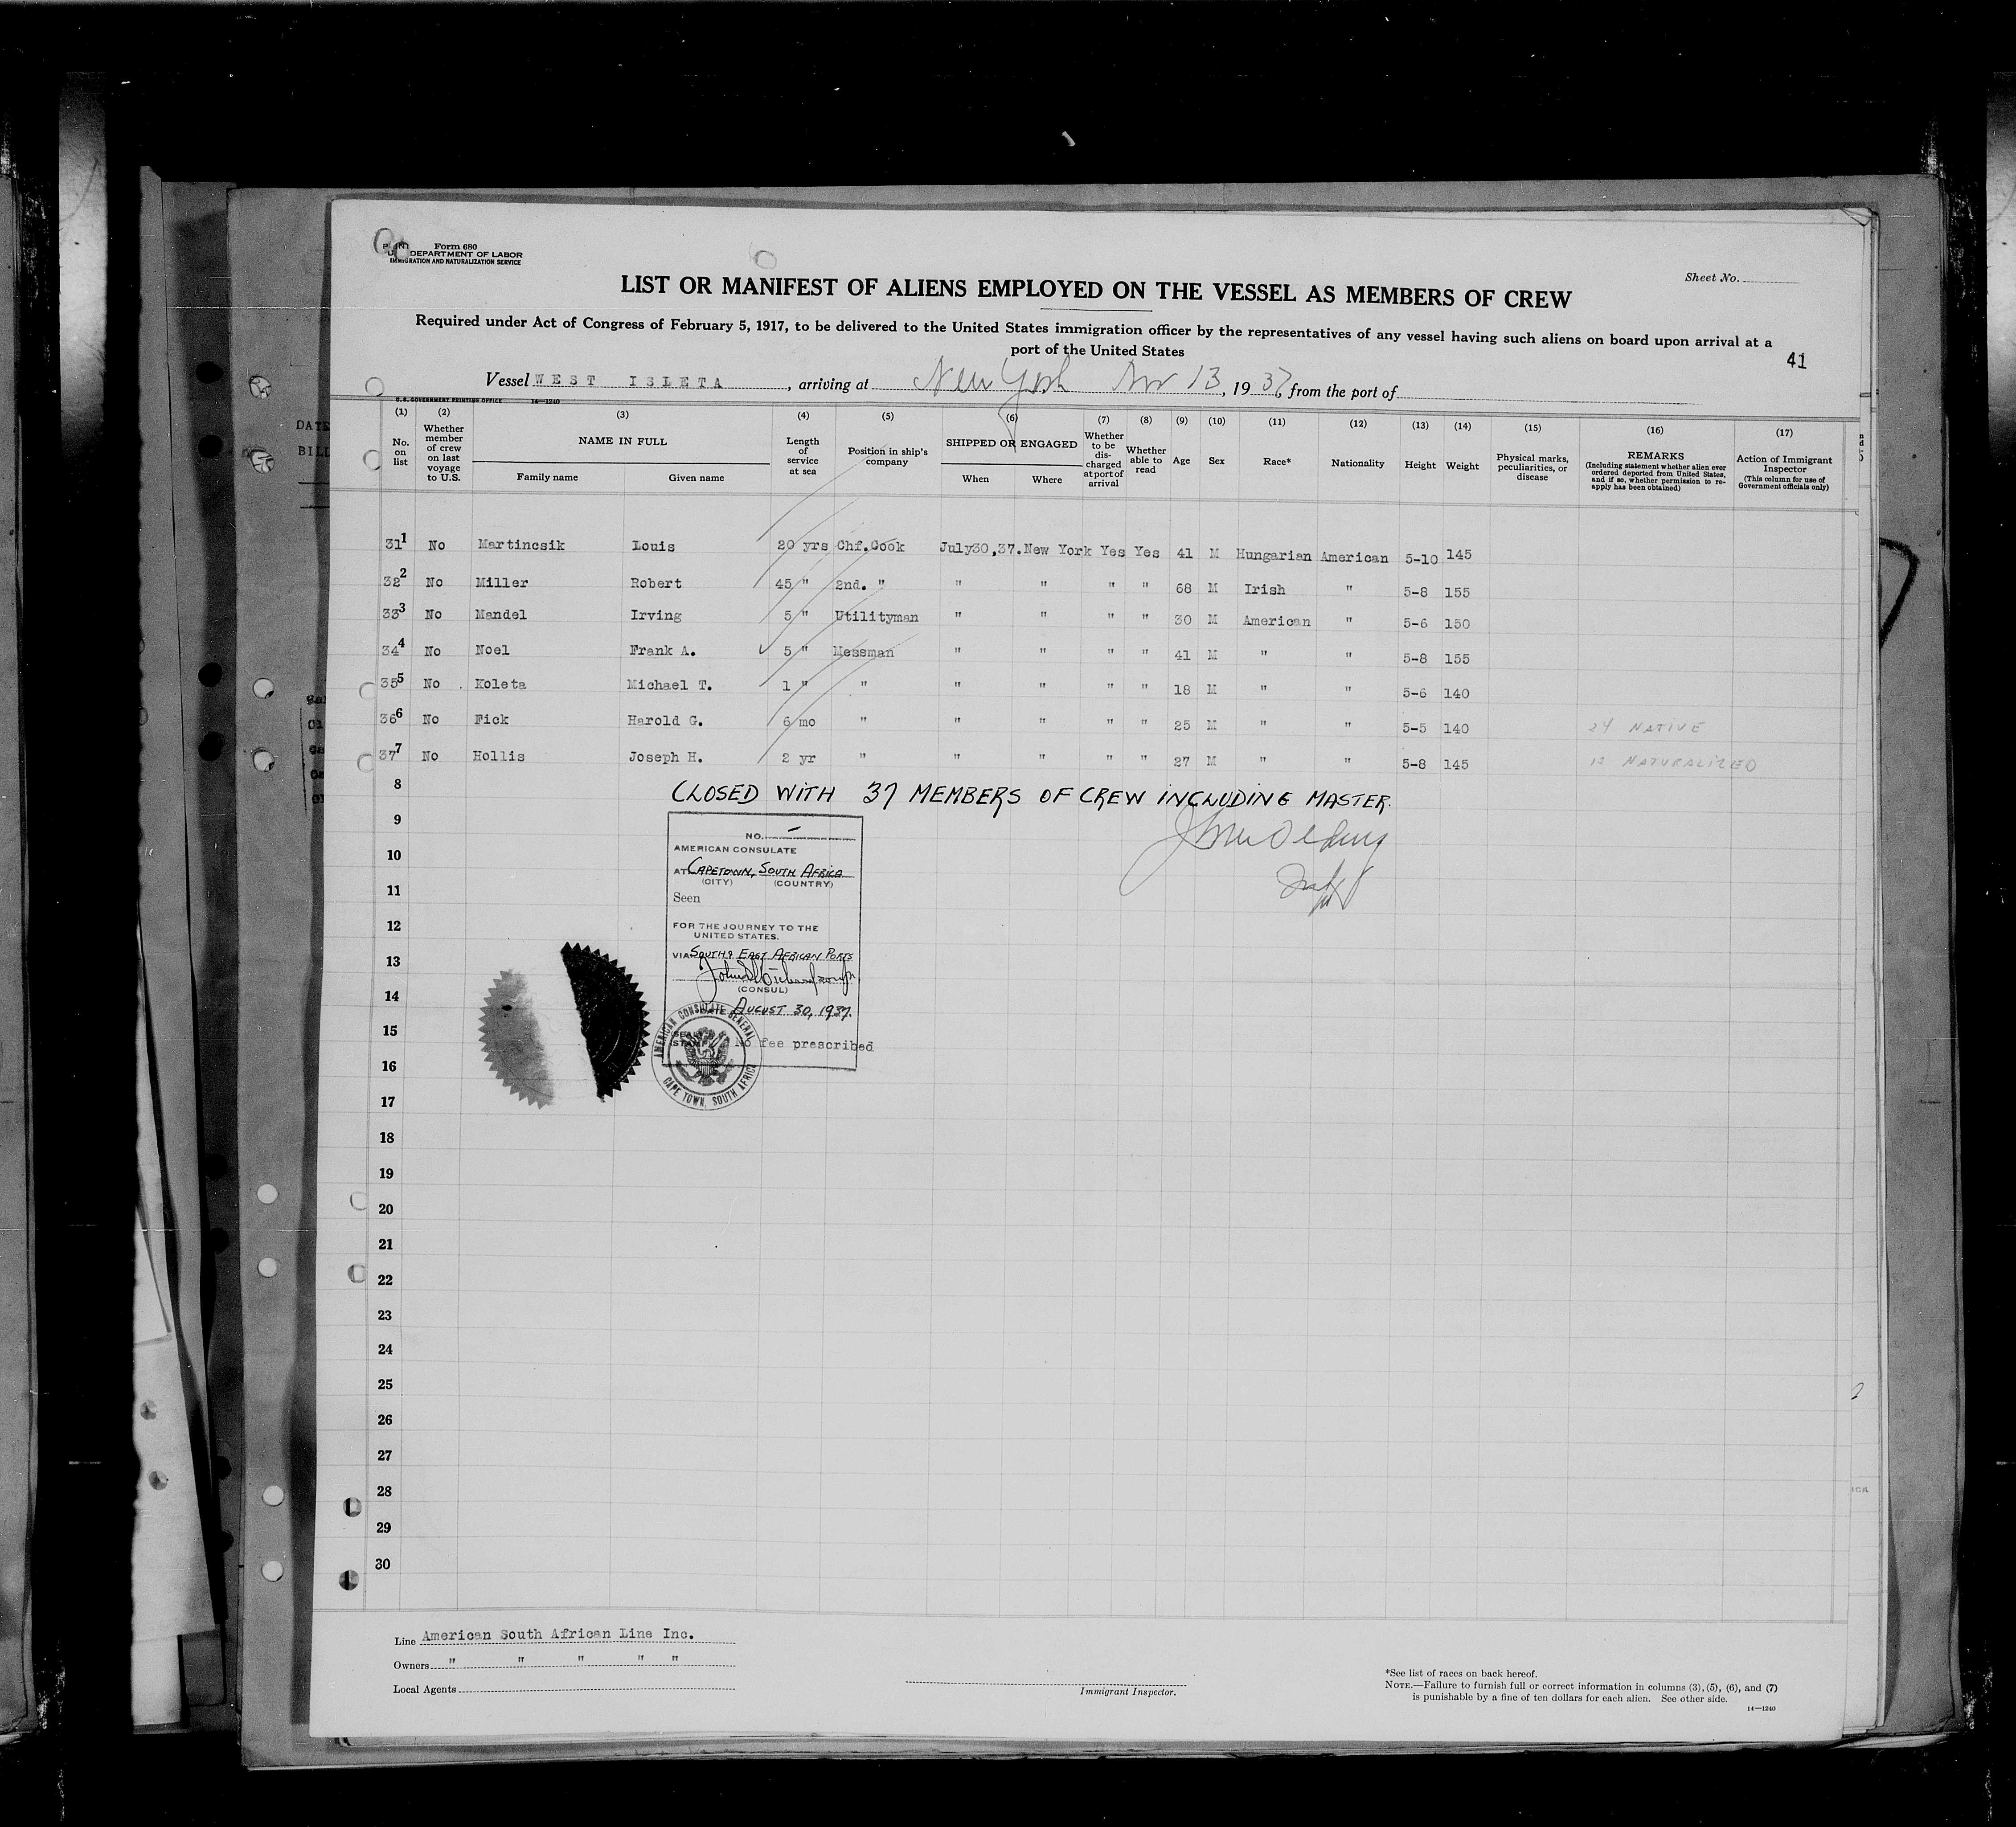 Form 680
DEPARTMENT OF LABOR
IMMIGRATION AND NATURALIZATION SERVICE
Sheet No.
LIST OR MANIFEST OF ALIENS EMPLOYED ON THE VESSEL AS MEMBERS OF CREW
Required under Act of Congress of February 5, 1917, to be delivered to the United States immigration officer by the representatives of any vessel having such aliens on board upon arrival at a
port of the United States
41
Vessel WEST ISLETA, arriving at New York Nov 13, 1937, from the port of
U.S. GOVERNMENT PRINTING OFFICE 14—1240
(1) (2) (3) (4) (5) (6) (7) (8) (9) (10) (11) (12) (13) (14) (15) (16) (17)
No. on list
Whether member of crew on last voyage to U.S.
NAME IN FULL
Family name Given name
Length of service at sea
Position in ship's company
SHIPPED OR ENGAGED
When Where
Whether to be discharged at port of arrival
Whether able to read
Age
Sex
Race*
Nationality
Height
Weight
Physical marks, peculiarities, or disease
REMARKS
(Including statement whether alien ever ordered deported from United States, and if so, whether permission to re-apply has been obtained)
Action of Immigrant Inspector
(This column for use of Government officials only)
31 1 No Martincsik Louis 20 yrs Chf.Cook July30,37. New York Yes Yes 41 M Hungarian American 5-10 145
32 2 No Miller Robert 45 " 2nd. " " " " " 68 M Irish " 5-8 155
33 3 No Mandel Irving 5 " Utilityman " " " " 30 M American " 5-6 150
34 4 No Noel Frank A. 5 " Messman " " " " 41 M " " 5-8 155
35 5 No Koleta Michael T. 1 " " " " " " 18 M " " 5-6 140
36 6 No Fick Harold G. 6 mo " " " " " 25 M " " 5-5 140 24 NATIVE
37 7 No Hollis Joseph H. 2 yr " " " " " 27 M " " 5-8 145 NATURALIZED
8
CLOSED WITH 37 MEMBERS OF CREW INCLUDING MASTER.
9
10
11
12
13
14
15
16
17
18
19
20
21
22
23
24
25
26
27
28
29
30
NO. –
AMERICAN CONSULATE
AT CAPETOWN, SOUTH AFRICA
(CITY) (COUNTRY)
Seen
FOR THE JOURNEY TO THE
UNITED STATES.
VIA SOUTH & EAST AFRICAN PORTS
(CONSUL)
DATE AUGUST 30, 1937.
No fee prescribed
AMERICAN CONSULATE GENERAL
CAPE TOWN, SOUTH AFRICA
Line American South African Line Inc.
Owners " " " " "
Local Agents
Immigrant Inspector.
*See list of races on back hereof.
NOTE.—Failure to furnish full or correct information in columns (3), (5), (6), and (7)
is punishable by a fine of ten dollars for each alien. See other side.
14—1240
DATE
BILL